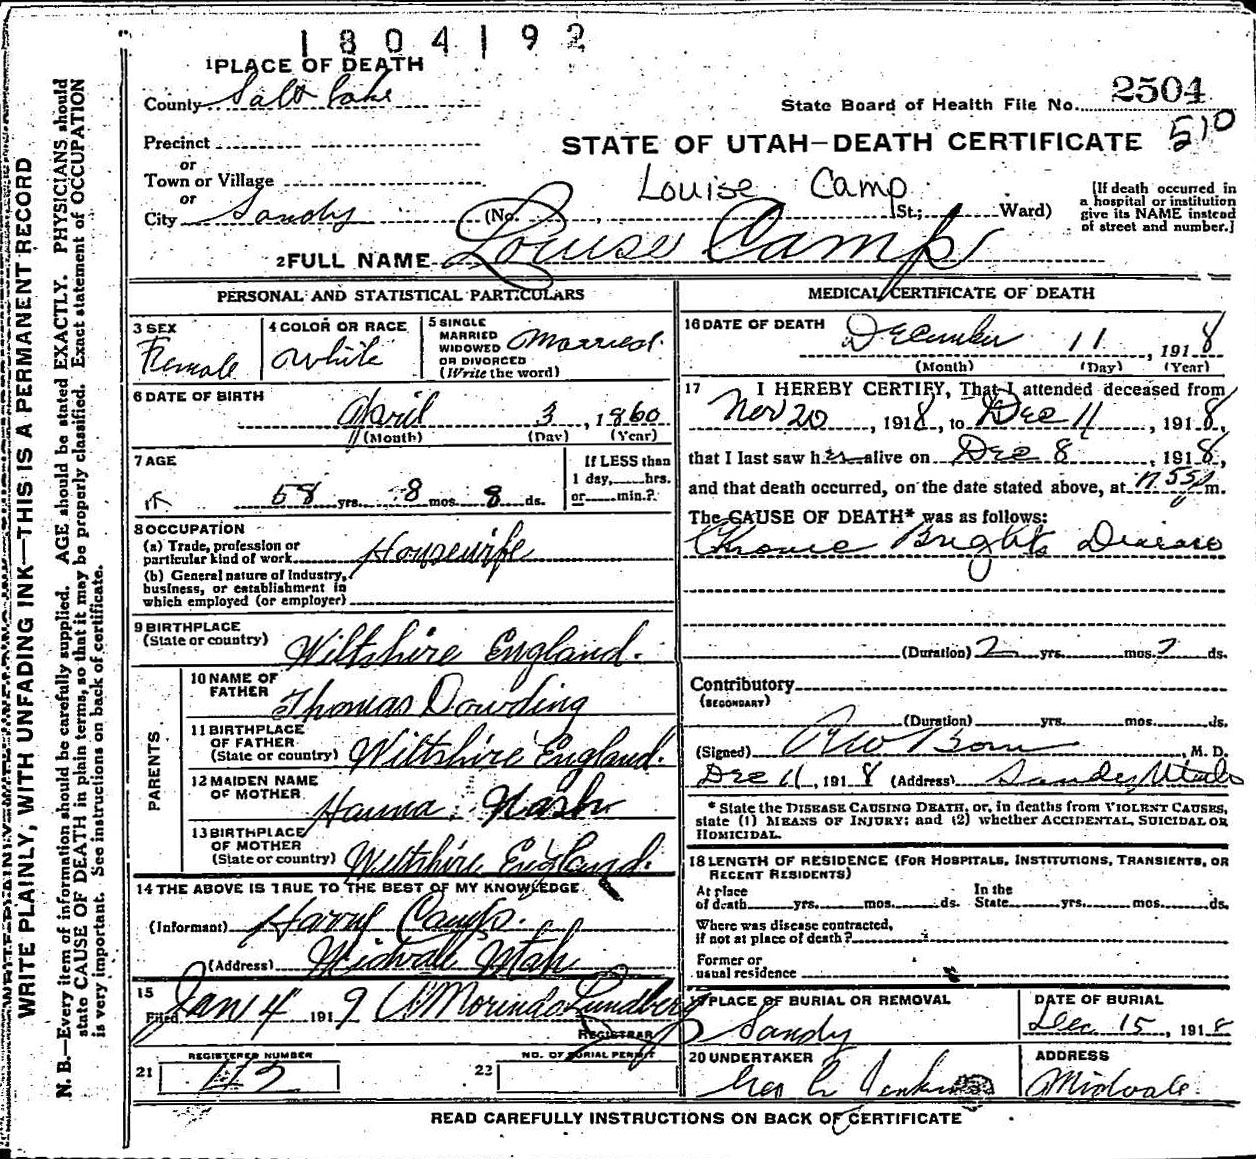 1804192
1 PLACE OF DEATH
County Salt Lake
State Board of Health File No. 2504
Precinct
STATE OF UTAH—DEATH CERTIFICATE 510
or
Town or Village
Louise Camp
or
City Sandy (No. , St.; Ward)
[If death occurred in
a hospital or institution
give its NAME instead
of street and number.]
2 FULL NAME Louise Camp
PERSONAL AND STATISTICAL PARTICULARS
3 SEX
Female
4 COLOR OR RACE
White
5 SINGLE
MARRIED
WIDOWED
OR DIVORCED
(Write the word)
Married.
6 DATE OF BIRTH
April 3, 1860
(Month) (Day) (Year)
7 AGE
58 yrs. 8 mos. 8 ds.
If LESS than
1 day, hrs.
or min.?
8 OCCUPATION
(a) Trade, profession or
particular kind of work Housewife
(b) General nature of Industry,
business, or establishment in
which employed (or employer)
9 BIRTHPLACE
(State or country) Wiltshire England.
PARENTS.
10 NAME OF
FATHER Thomas Dowding
11 BIRTHPLACE
OF FATHER
(State or country) Wiltshire England.
12 MAIDEN NAME
OF MOTHER Hanna Nash
13 BIRTHPLACE
OF MOTHER
(State or country) Wiltshire England.
14 THE ABOVE IS TRUE TO THE BEST OF MY KNOWLEDGE
(Informant) Harry Camp.
(Address) Midvale Utah
15
Filed Jan 4 1919 Morinda Lundberg
REGISTRAR
REGISTERED NUMBER
21
NO. OF BURIAL PERMIT
22
MEDICAL CERTIFICATE OF DEATH
16 DATE OF DEATH
December 11, 1918
(Month) (Day) (Year)
17 I HEREBY CERTIFY, That I attended deceased from
Nov 20, 1918, to Dec 11, 1918,
that I last saw her alive on Dec 8, 1918,
and that death occurred, on the date stated above, at m.
The CAUSE OF DEATH* was as follows:
Chronic Brights Disease
(Duration) 2 yrs. mos. ? ds.
Contributory
(SECONDARY)
(Duration) yrs. mos. ds.
(Signed) , M. D.
Dec 11, 1918 (Address) Sandy Utah
* State the DISEASE CAUSING DEATH, or, in deaths from VIOLENT CAUSES,
state (1) MEANS OF INJURY; and (2) whether ACCIDENTAL, SUICIDAL OR
HOMICIDAL.
18 LENGTH OF RESIDENCE (FOR HOSPITALS, INSTITUTIONS, TRANSIENTS, OR
RECENT RESIDENTS)
At place
of death yrs. mos. ds.
In the
State yrs. mos. ds.
Where was disease contracted,
if not at place of death?
Former or
usual residence
PLACE OF BURIAL OR REMOVAL
Sandy
DATE OF BURIAL
Dec 15, 1918
20 UNDERTAKER
ADDRESS
Midvale.
READ CAREFULLY INSTRUCTIONS ON BACK OF CERTIFICATE
WRITE PLAINLY, WITH UNFADING INK—THIS IS A PERMANENT RECORD
N. B.—Every item of information should be carefully supplied. AGE should be stated EXACTLY. PHYSICIANS should
state CAUSE OF DEATH in plain terms, so that it may be properly classified. Exact statement of OCCUPATION
is very important. See instructions on back of certificate.